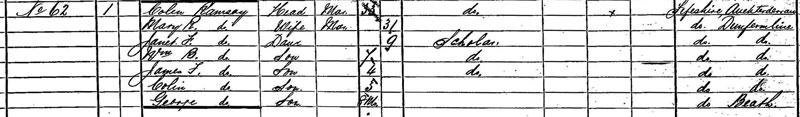 No 62 1 Colin Ramsay Head Mar. do. x Fifeshire Auchterderran
Mary R. do Wife Mar. 31 do. Dunfermline
Janet F. do. Daur 9 Scholar. do. do.
Wm B. do Son 7 do. do. do.
James F. do. Son 4 do. do. do.
Colin do Son 5 do do.
George do Son 8 Mo. do Beath.